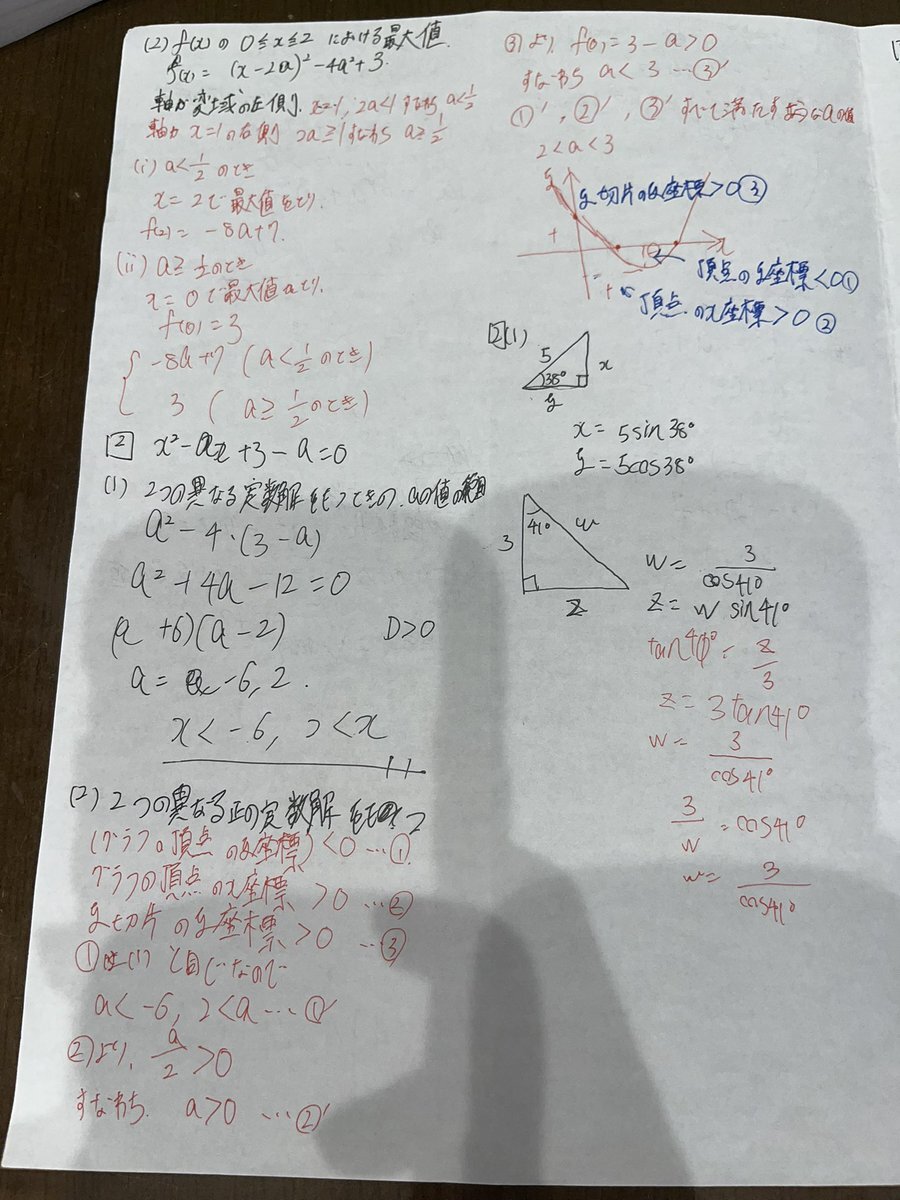 (2) f(x) の 0≦x≦2 における最大値.
f(x) = (x-2a)²-4a²+3.
軸が変域の左側. x=1, 2a<1 すなわち a<1/2
軸が x=1の右側 2a≥1すなわち a≥1/2
(i) a<1/2 のとき
x=2で最大値をとり
f(2) = -8a+7.
(ii) a≥1/2のとき
x=0で最大値をとり.
f(0)=3
{ -8a+7 (a<1/2のとき)
3 (a≥1/2のとき)
2 x²-ax+3-a=0
(1) 2つの異なる定数解をもつときの、aの値の範囲
a²-4・(3-a)
a²+4a-12=0
(a+6)(a-2) D>0
a=-6,2.
x<-6, 2<x
(2) 2つの異なる正の定数解をもつ
(グラフの頂点のy座標)<0…①
グラフの頂点のx座標>0…②
y切片のy座標>0…③
①は(1)と同じなので
a<-6, 2<a…①′
②より, a/2>0
すなわち. a>0…②′
③より f(0)=3-a>0
すなわち a<3…③′
①′, ②′, ③′ すべて満たすようなaの値
2<a<3
y
y切片のy座標>0③
+
x
頂点のy座標<0①
+
頂点のx座標>0②
2(1)
5
38°
x
y
x=5sin38°
y=5cos38°
41°
w
3
z
w=3/cos41°
z=w sin41°
tan41°=z/3
z=3tan41°
w=3/cos41°
3/w=cos41°
w=3/cos41°